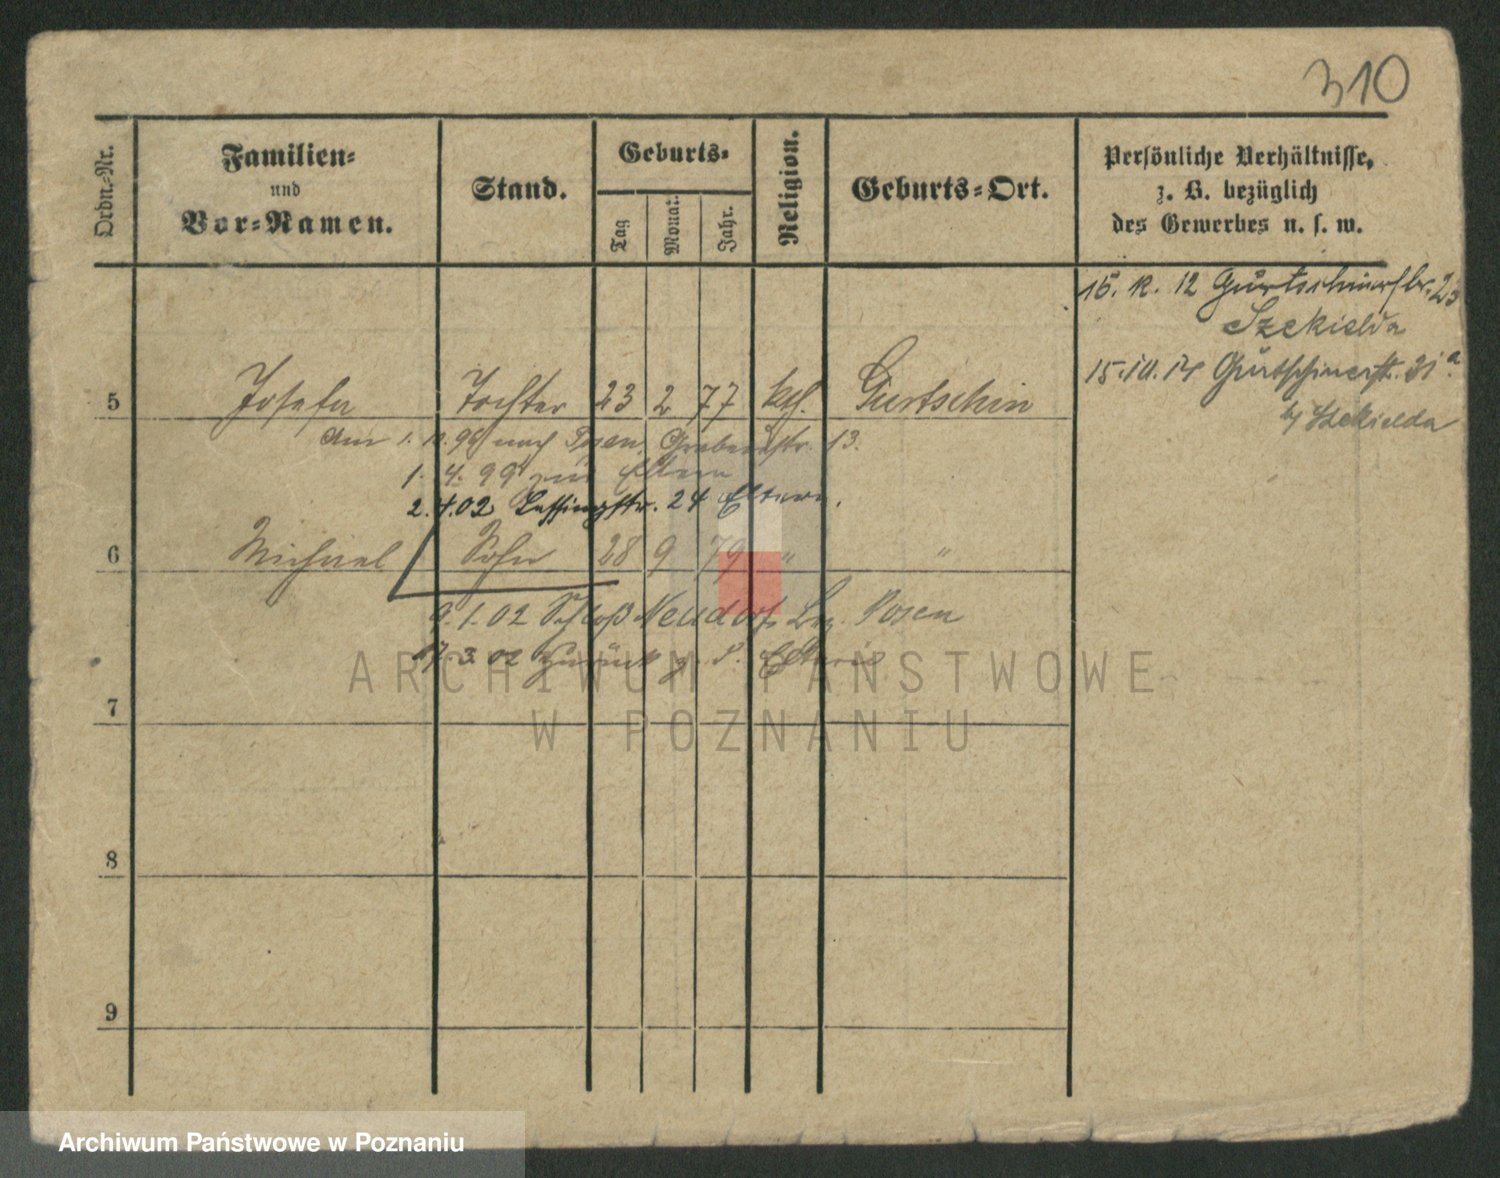 310
Ordn.-Nr.
Familien-
und
Vor-Namen.
Stand.
Geburts-
Tag
Monat.
Jahr.
Religion.
Geburts-Ort.
Persönliche Verhältnisse,
z. B. bezüglich
des Gewerbes u. s. w.
15. 12 Gurtschinerstr. 23
Szekielda
15.10.14 Gurtschinerstr. 31a
b/ Szekielda
5 Josefa Tochter 23 2 77 kth. Gurtschin
Am 1. 10. 96 nach Posen, Grabenstr. 13.
1. 4. 99 zu Eltern
2.4.02 Lessingstr. 24 Eltern.
6 Michael Sohn 28 9 79 " "
9.1.02 Schloß Neudorf, Bez. Posen
17.3.02 Zurück z. d. Eltern
7
ARCHIWUM PAŃSTWOWE
W POZNANIU
8
9
Archiwum Państwowe w Poznaniu